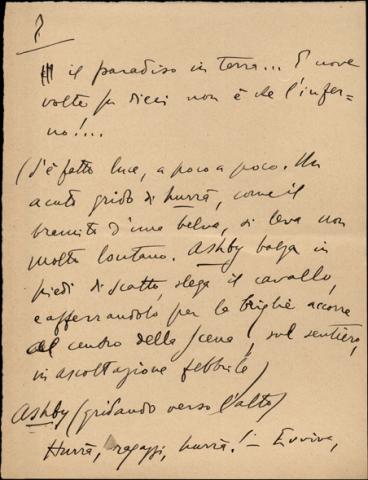 il paradiso in terra... E nove
volte su dieci non è che l'infer=
no!...
(S'è fatto luce, a poco a poco. Un
acuto grido di hurrà, come il
bramito d'una belva, si leva non
molto lontano. Ashby balza in
piedi di scatto, slega il cavallo,
e afferrandolo per le briglie accorre
al centro della scena, sul sentiero,
in ascoltazione febbrile)
Ashby (gridando verso l'alto)
Hurrà, ragazzi, hurrà! – Evviva,